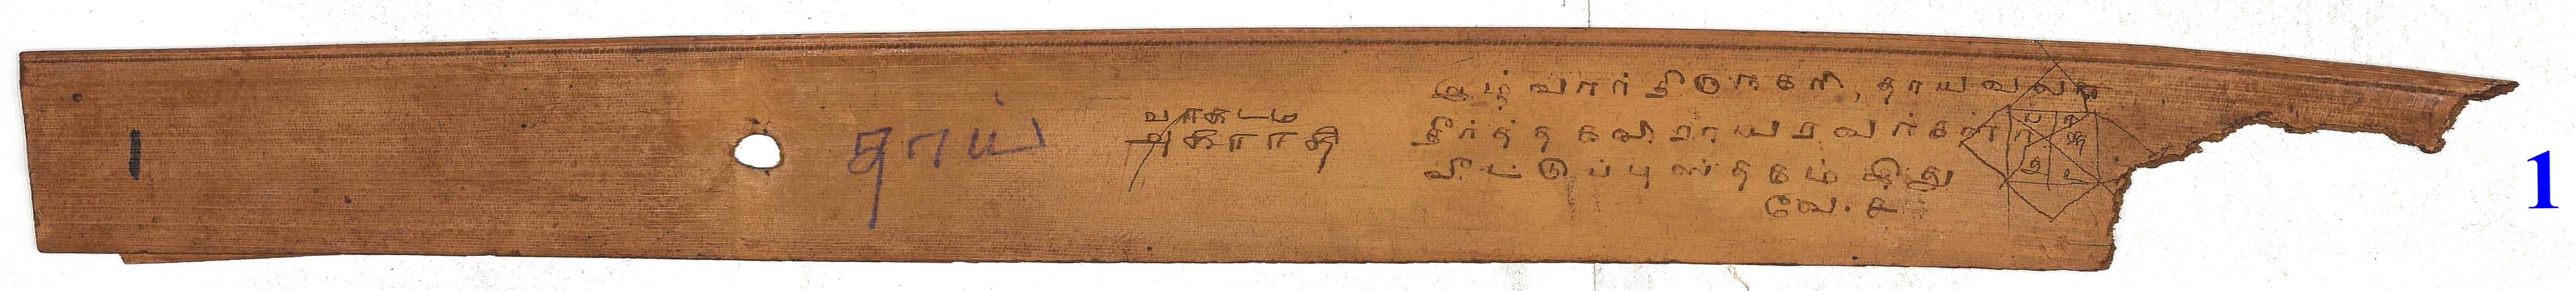 1
தாய்
வாகடம்
அகராதி
ஆழ்வார்திருநகரி, தாயவலந
தீர்த்த கவிராயரவர்கள்
வீட்டுப்புஸ்தகம் இது
வே. உ
1